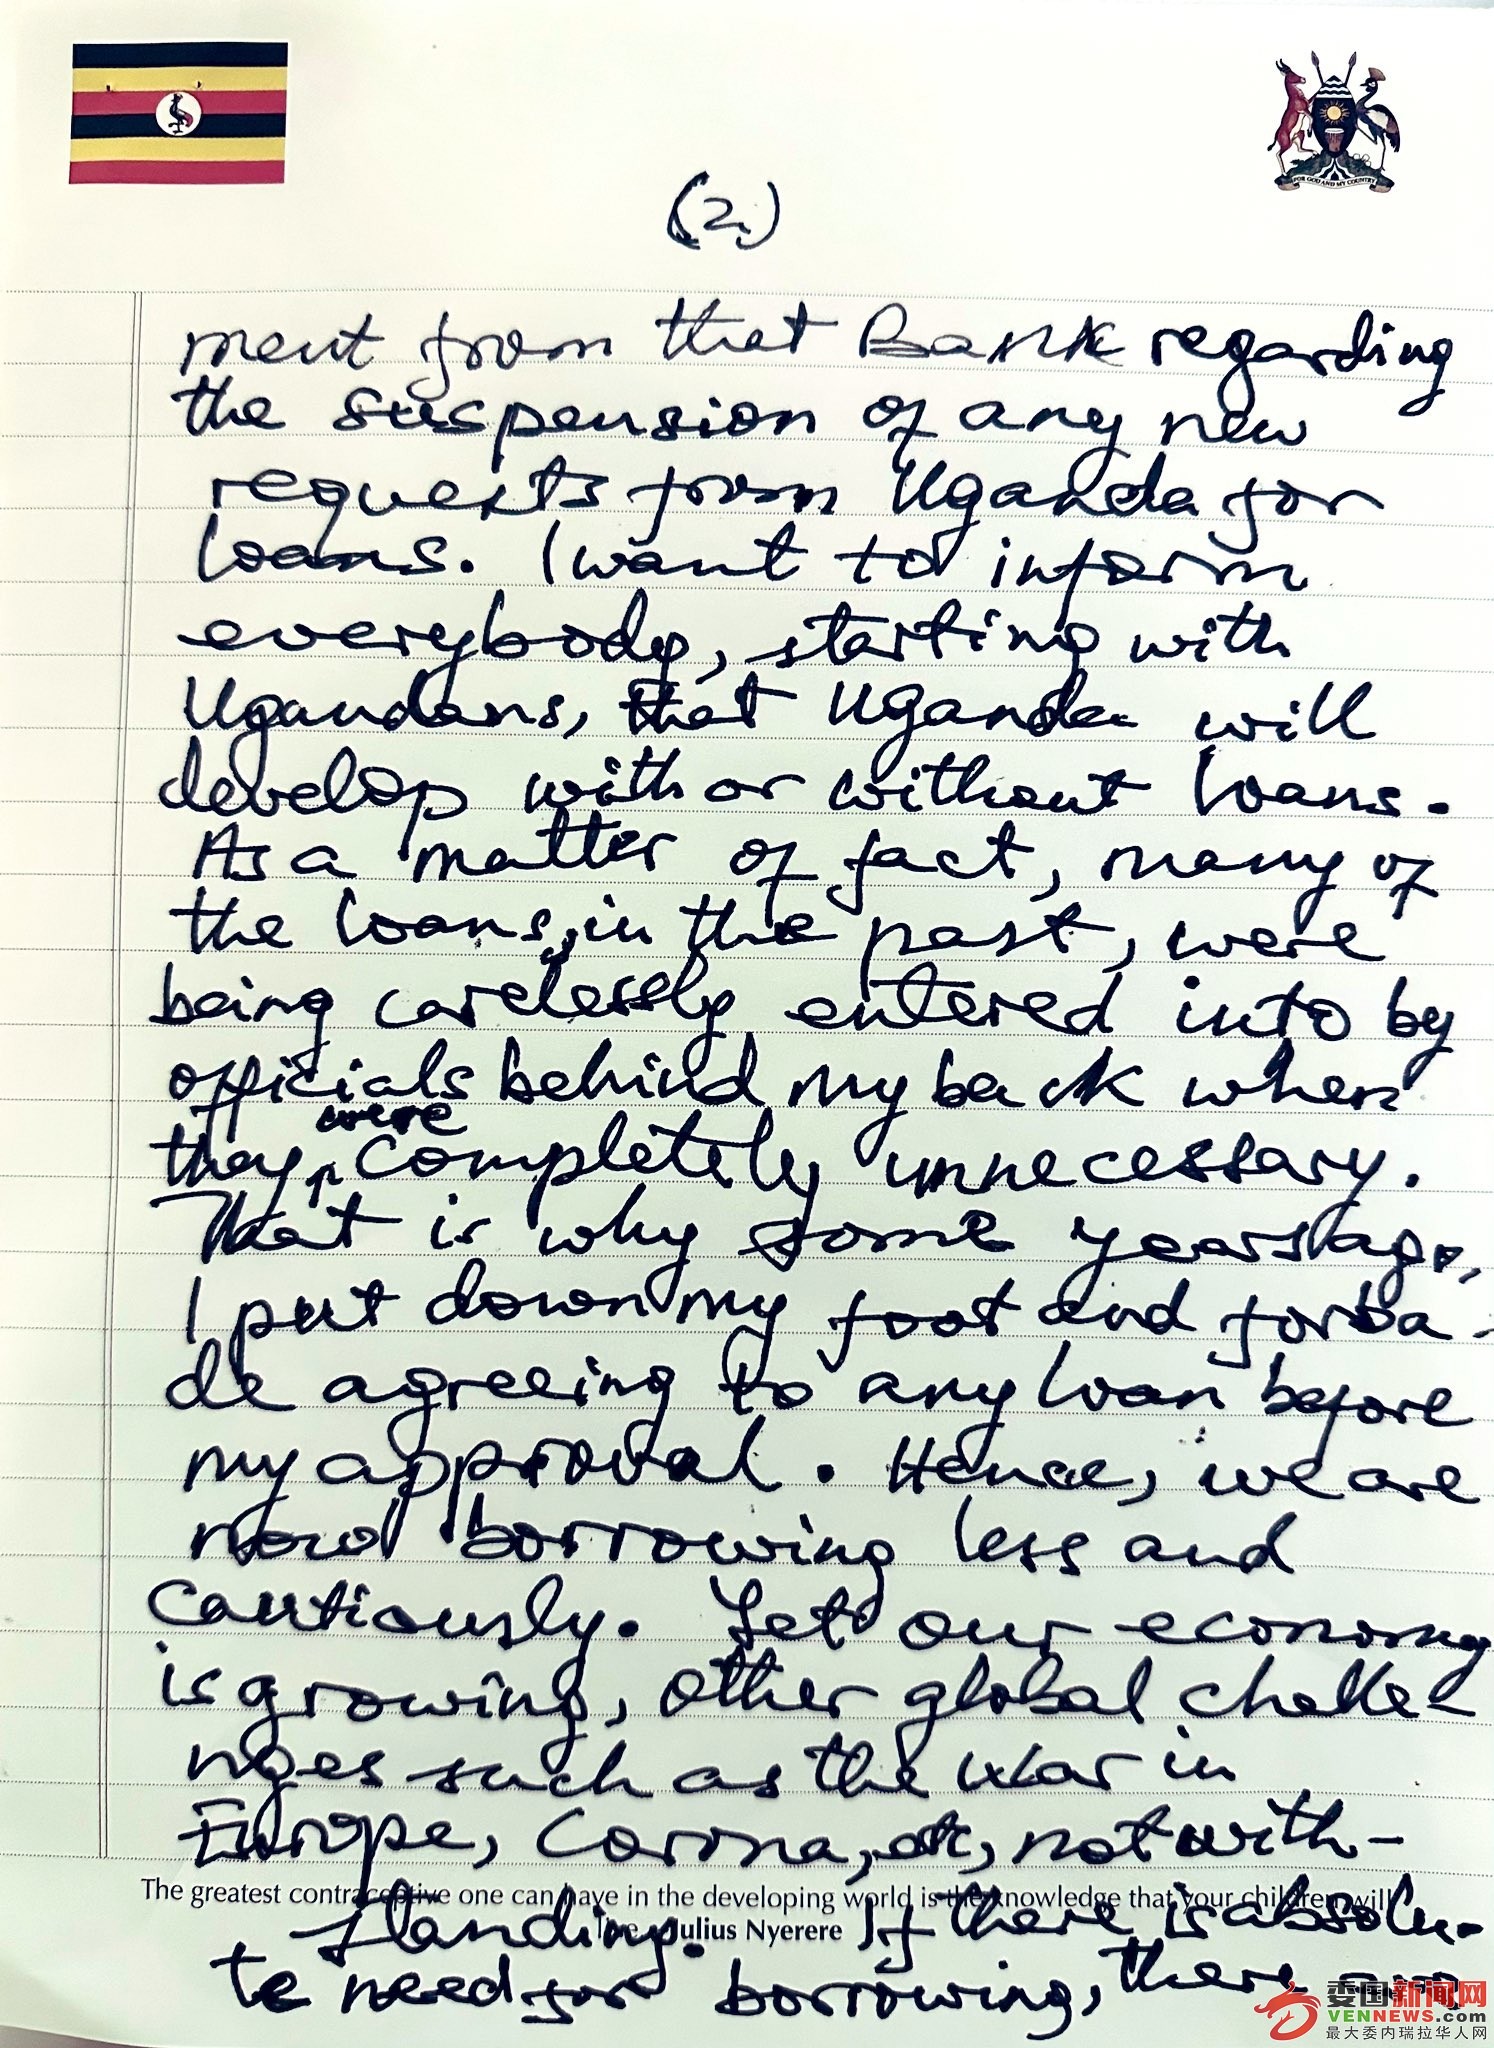 FOR GOD AND MY COUNTRY
(2.)
ment from that Bank regarding
the suspension of any new
requests from Uganda for
loans. I want to inform
everybody, starting with
Ugandans, that Uganda will
develop with or without loans.
As a matter of fact, many of
the loans, in the past, were
being carelessly entered into by
officials behind my back when
they were completely unnecessary.
That is why some years ago,
I put down my foot and forba-
de agreeing to any loan before
my approval. Hence, we are
now borrowing less and
cautiously. Yet our economy
is growing, other global challe-
nges such as the war in
Europe, Corona, etc, notwith-
The greatest contraceptive one can have in the developing world is the knowledge that your children will
live. Julius Nyerere
standing. If there is absolu-
te need for borrowing, there are
委国新闻网
VENNEWS.com
最大委内瑞拉华人网